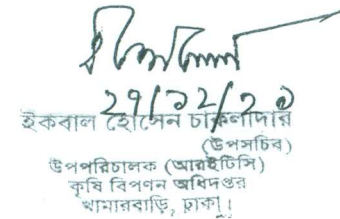 ২৭/১২/২১
ইকবাল হোসেন চাকলাদার
(উপসচিব)
উপপরিচালক (আরইটিসি)
কৃষি বিপণন অধিদপ্তর
খামারবাড়ি, ঢাকা।